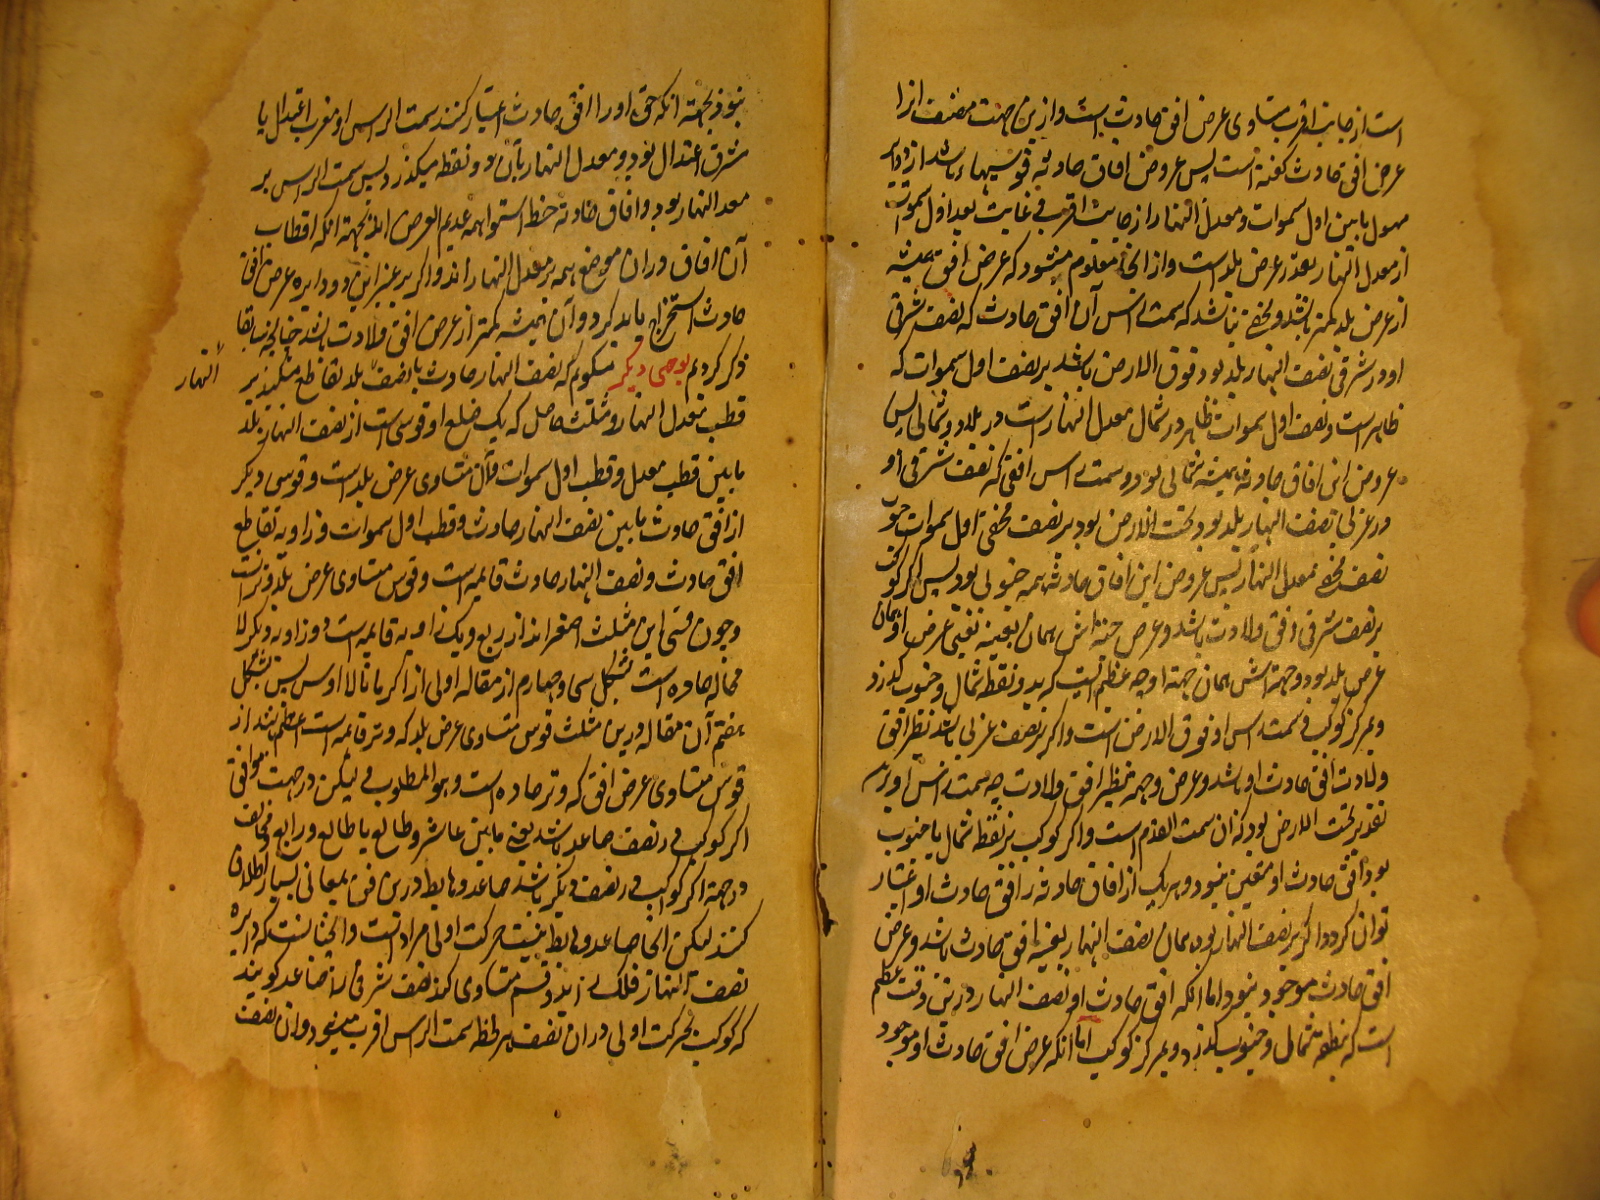 است از جانب اقرب مساوی عرض افق حادث است و ازین جهت مصنف انرا
عرض افق حادث گفته است پس عروض افاق حادثه قوسیهاء باشد از دوایر
میول مابین اول سموات و معدل النهار از جانب اقرب و غایت بعد اول سموات
از معدل النهار بقدر عرض بلد است و از انجا معلوم میشود که عرض افق همیشه
از عرض بلد کمتر باشد و مخفی نباشد که سمت راس آن افق حادث که نصف شرقی
او در شرقی نصف النهار بلد بود فوق الارض باشد بر نصف اول سموات که
ظاهر است و نصف اول سموات ظاهر در شمال معدل النهار است در بلاد شمالی پس
عروض این افاق حادثه همیشه شمالی بود و سمت راس افقی که نصف شرقی او
در غربی نصف النهار بلد بود تحت الارض بود بر نصف مخفی اول سموات جنوب
نصف مخفی معدل النهار پس عروض این افاق حادثه همه جنوبی بود پس اگر کوکب
بر نصف شرقی افق ولادت باشد و عرض حادثه‌اش همان بعینه یعنی عرض او همان
عرض بلد بود و جهتش همان جهة او چه عظیمه ایست که بدو نقطه شمال و جنوب گذرد
و بمرکز کوکب و سمت راس او فوق الارض است و اگر بر نصف غربی باشد نظیر افق
ولادت افق حادث او باشد و عرض و جهة نظیر افق ولادت چه سمت راس او برین
تقدیر تحت الارض بود که آن سمت القدم است و اگر کوکب بر نقطه شمال یا جنوب
بود افق حادث او متعین نبود و هر یک از افاق حادثه را افق حادث او اعتبار
توان کرد و اگر بر نصف النهار بود همان نصف النهار بعینه افق حادث باشد و عرض
افق حادث موجود نبود اما انکه افق حادث او نصف النهار درین وقت عظیمه
است که بنقطه شمال و جنوب گذرد و بمرکز کوکب اما انکه عرض افق حادث او موجود
نبود بجهة انکه حق او را افق حادث اعتبار کنند سمت الراس او مغرب اعتدال یا
مشرق اعتدال بود و معدل النهار بآن دو نقطه میگذرد پس سمت الراس بر
معدل النهار بود و افاق حادثه خط استوا همه عدیم العرض اند بجهة انکه اقطاب
آن افاق در ان موضع همه بر معدل النهار اند و اگر بر غیر این دو دایره عرض افق
حادث استخراج باید کرد و آن همیشه کمتر از عرض افق ولادت باشد چنانچه سابقا
ذکر کردیم بوجهی دیگر میگویم که نصف النهار حادث با نصف بلد تقاطع میکند بر
النهار
قطب معدل النهار و مثلث حاصل که یک ضلع او قوسی است از نصف النهار بلد
مابین قطب معدل و قطب اول سموات و آن مساوی عرض بلد است و قوسی دیگر
از افق حادث مابین نصف النهار حادث و قطب اول سموات و زاویه تقاطع
افق حادث و نصف النهار حادث قائمه است و قوس مساوی عرض بلد وتر انست
و چون قسی این مثلث اصغر اند از ربع و یک زاویه قایمه است دو زاویه دیگر لا
محاله حاده است بشکل سی و چهارم از مقاله اولی از اکر مانالاوس پس بشکل
هفتم آن مقاله درین مثلث قوس مساوی عرض بلد که وتر قائمه است اعظم باشد از
قوس مساوی عرض افق که وتر حاده است و هو المطلوب و لیکن در جهت موافق
اگر کوکب در نصف صاعد باشد یعنی مابین عاشر و طالع یا طالع و رابع و مخالف
در جهة اگر کوکب در نصف دیگر باشد صاعد و هابط درین فن بمعانی بسیار اطلاق
کنند لیکن انجا صاعد و هابط بنسبت حرکت اولی مراد است و انچنانست که دایره
نصف النهار فلک را بدو قسم مساوی کند نصف شرقی را صاعد گویند
که کوکب بحرکت اولی در ان نصف هر لحظه بسمت الراس اقرب میشود و ان نصف